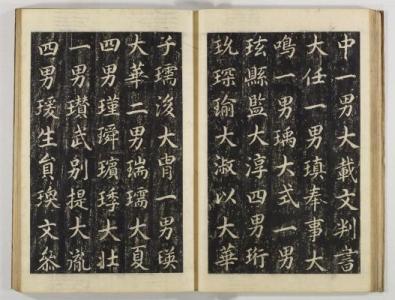 中一男大載文判書
大任一男瑱奉事大
鳴一男瑀大式一男
玹縣監大淳四男珩
玧琛瑜大淑以大華
子瓀後大胄一男瑛
大華二男瑞瓀大夏
四男瑾璸大壯
一男瓚武別提大胤
四男瑗生員瑍文叅